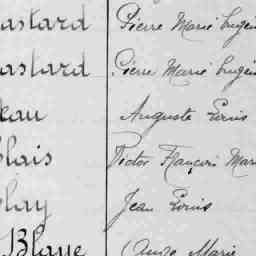 astard Pierre Marie Eugèn
astard Pierre Marie Eugèn
eau Auguste Louis
lais Victor François Mari
lay Jean Louis
Blaye Marie